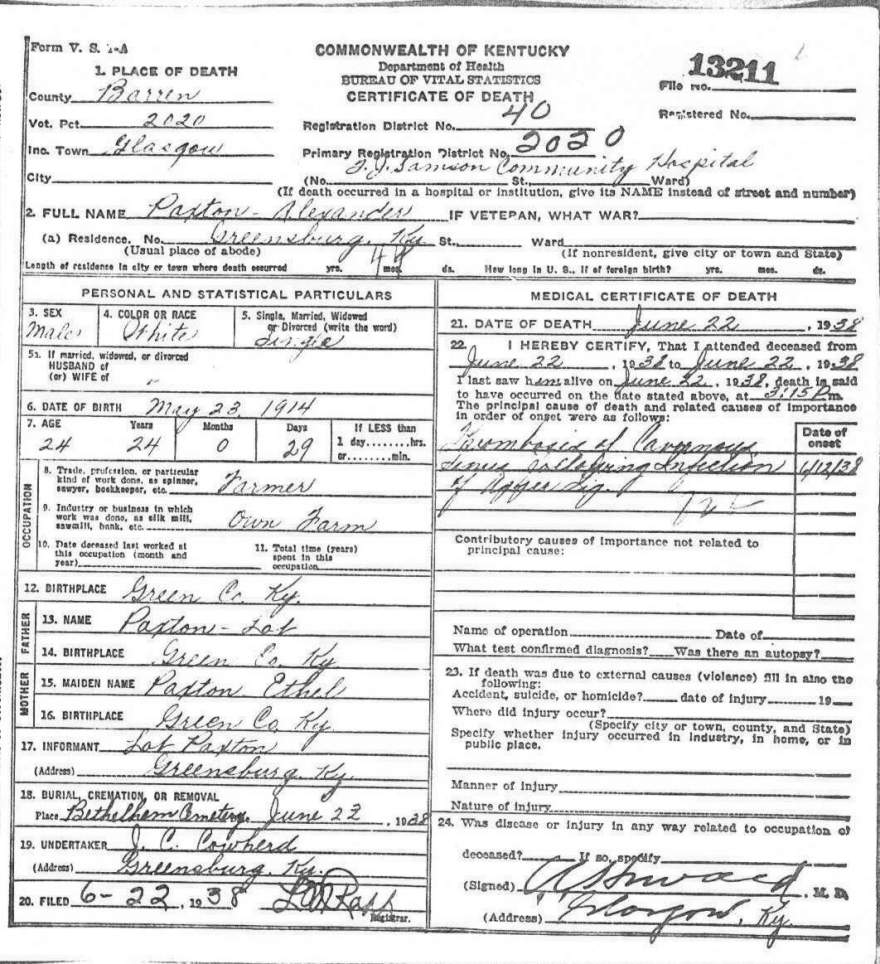 Form V. S. 1-A
COMMONWEALTH OF KENTUCKY
Department of Health
BUREAU OF VITAL STATISTICS
CERTIFICATE OF DEATH
File No. 13211
Registered No.
1. PLACE OF DEATH
County Barren
Vot. Pct. 2020
Inc. Town Glasgow
City
Registration District No. 40
Primary Registration District No. 2020
T. J. Samson Community Hospital
(No. St., Ward)
(If death occurred in a hospital or institution, give its NAME instead of street and number)
2. FULL NAME Paxton - Alexander IF VETERAN, WHAT WAR?
(a) Residence. No. Greensburg, Ky. St., Ward
(Usual place of abode) (If nonresident, give city or town and State)
Length of residence in city or town where death occurred yrs. mos. ds. How long in U. S., if of foreign birth? yrs. mos. ds.
PERSONAL AND STATISTICAL PARTICULARS
3. SEX Male 4. COLOR OR RACE White 5. Single, Married, Widowed or Divorced (write the word) Single
5a. If married, widowed, or divorced
HUSBAND of
(or) WIFE of
6. DATE OF BIRTH May 23, 1914
7. AGE Years Months Days If LESS than
24 24 0 29 1 day........hrs.
or........min.
OCCUPATION
8. Trade, profession, or particular
kind of work done, as spinner,
sawyer, bookkeeper, etc. Farmer
9. Industry or business in which
work was done, as silk mill,
sawmill, bank, etc. Own Farm
10. Date deceased last worked at
this occupation (month and
year)
11. Total time (years)
spent in this
occupation
12. BIRTHPLACE Green Co. Ky.
FATHER
13. NAME Paxton - Lot
14. BIRTHPLACE Green Co. Ky
MOTHER
15. MAIDEN NAME Paxton Ethel
16. BIRTHPLACE Green Co. Ky
17. INFORMANT Lot Paxton
(Address) Greensburg, Ky.
18. BURIAL, CREMATION, OR REMOVAL
Place Bethelhem Cemetery. June 22, 1938
19. UNDERTAKER J. C. Cowherd
(Address) Greensburg, Ky.
20. FILED 6-22, 1938
Registrar.
MEDICAL CERTIFICATE OF DEATH
21. DATE OF DEATH June 22, 1938
22. I HEREBY CERTIFY, That I attended deceased from
June 22, 1938 to June 22, 1938
I last saw him alive on June 22, 1938, death is said
to have occurred on the date stated above, at 3:15 P.m.
The principal cause of death and related causes of importance
in order of onset were as follows:
Date of
onset
Thrombosis of Cavernous
Sinus following Infection 6/12/38
of upper
Contributory causes of importance not related to
principal cause:
Name of operation Date of
What test confirmed diagnosis? Was there an autopsy?
23. If death was due to external causes (violence) fill in also the
following:
Accident, suicide, or homicide? date of injury 19
Where did injury occur?
(Specify city or town, county, and State)
Specify whether injury occurred in industry, in home, or in
public place.
Manner of injury
Nature of injury
24. Was disease or injury in any way related to occupation of
deceased? If so, specify
(Signed) M. D.
(Address) Glasgow, Ky.